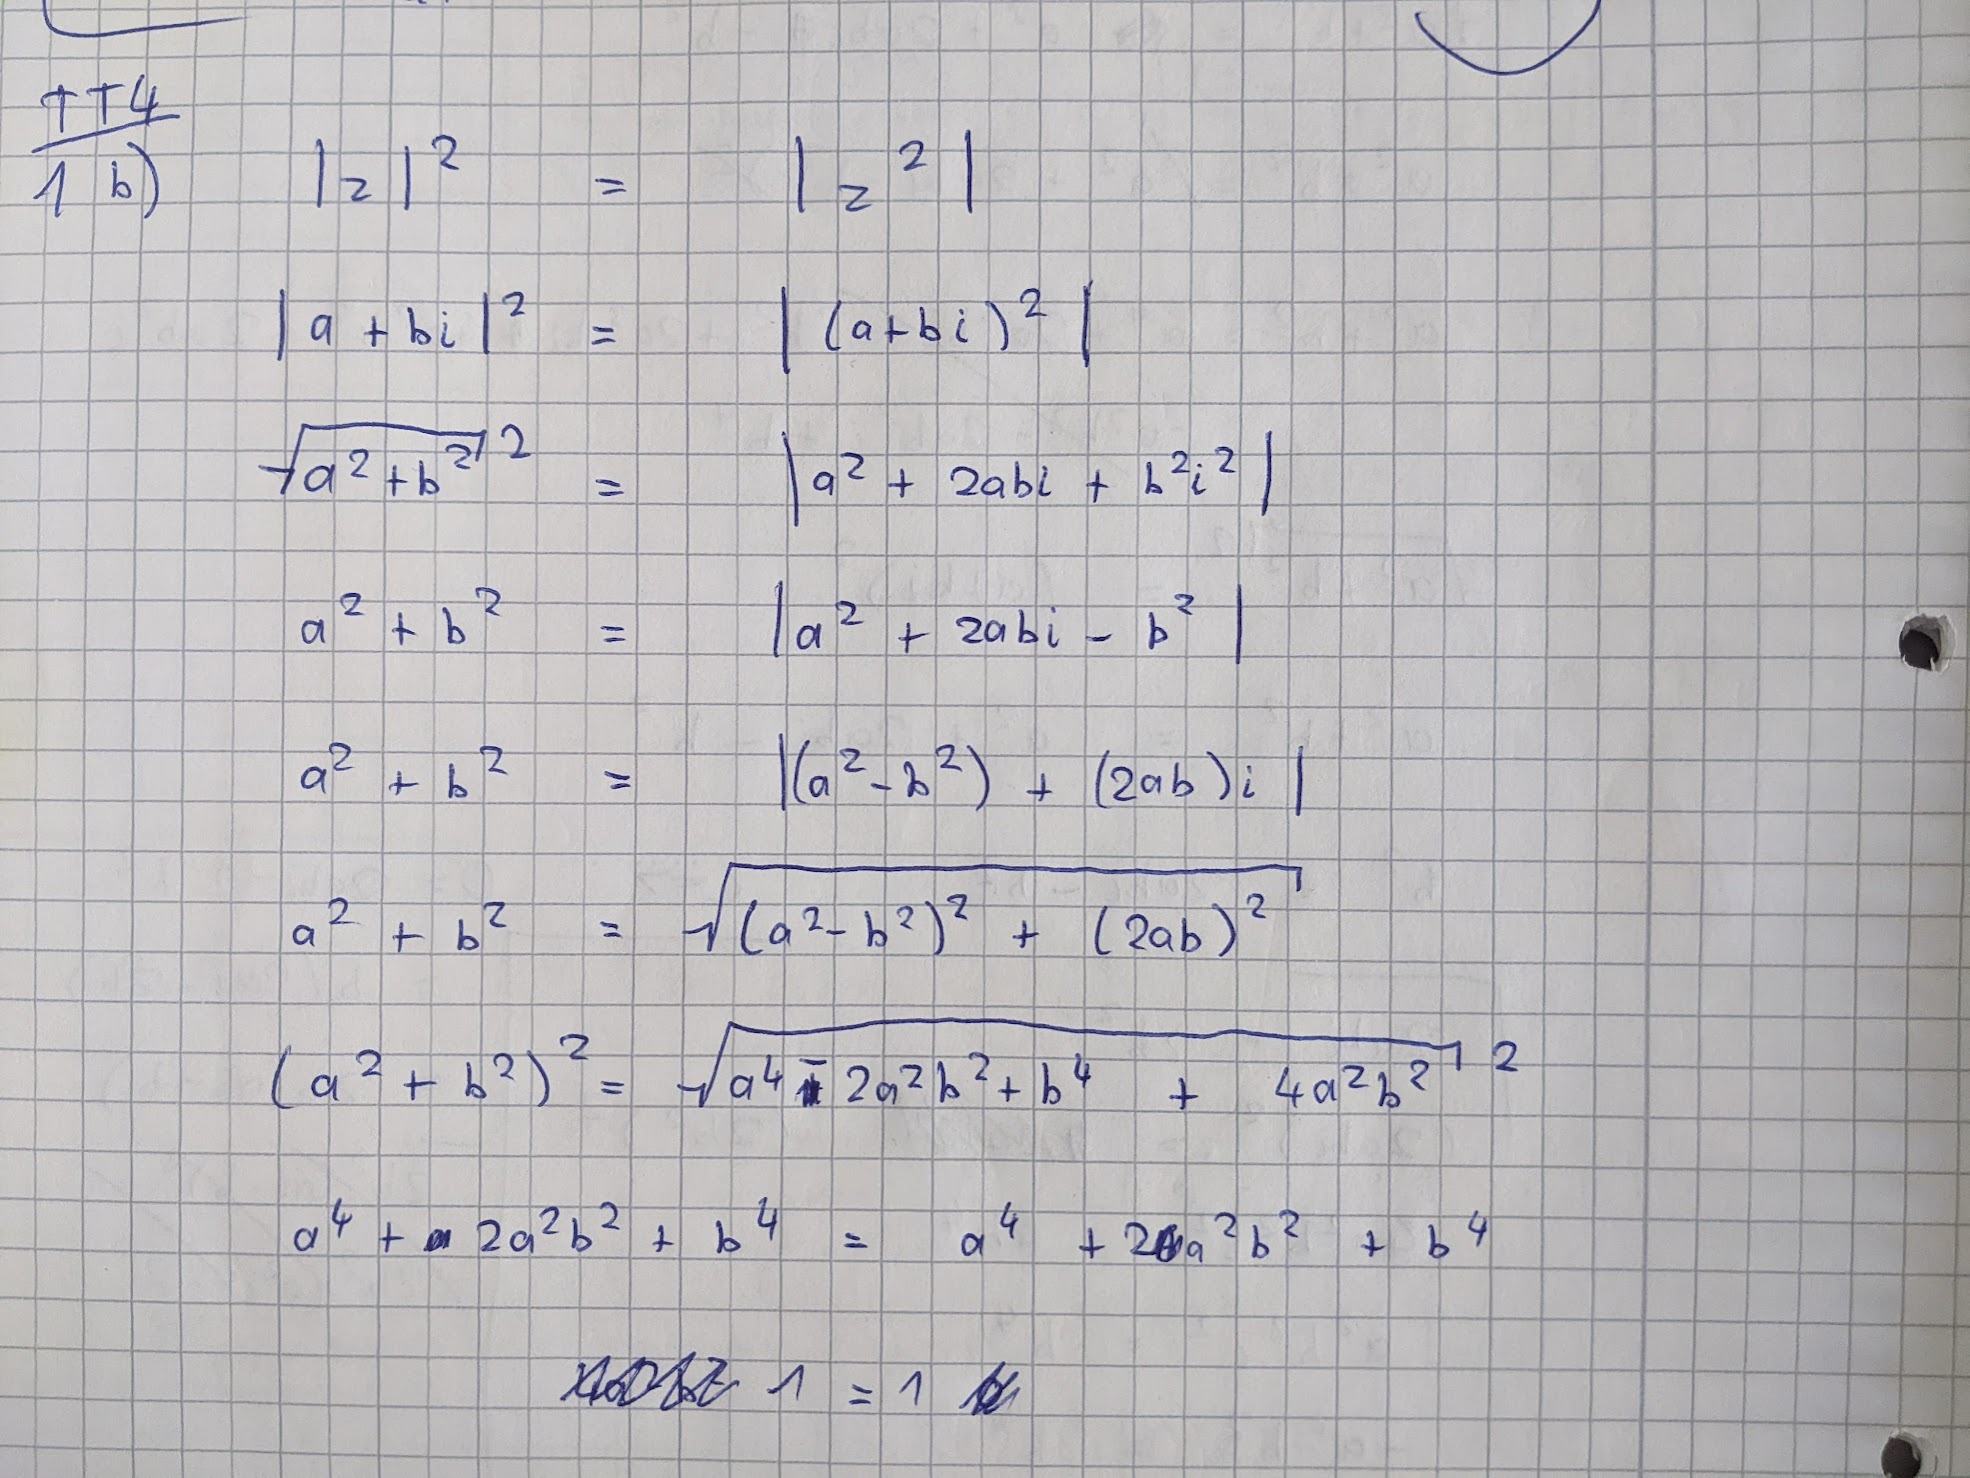 TT4
1 b) |z|² = |z²|
|a + bi|² = |(a+bi)²|
√(a²+b²)² = |a² + 2abi + b²i²|
a² + b² = |a² + 2abi - b²|
a² + b² = |(a²-b²) + (2ab)i|
a² + b² = √((a²-b²)² + (2ab)²)
(a² + b²)² = √(a⁴ - 2a²b² + b⁴ + 4a²b²)²
a⁴ + 2a²b² + b⁴ = a⁴ + 2a²b² + b⁴
1 = 1